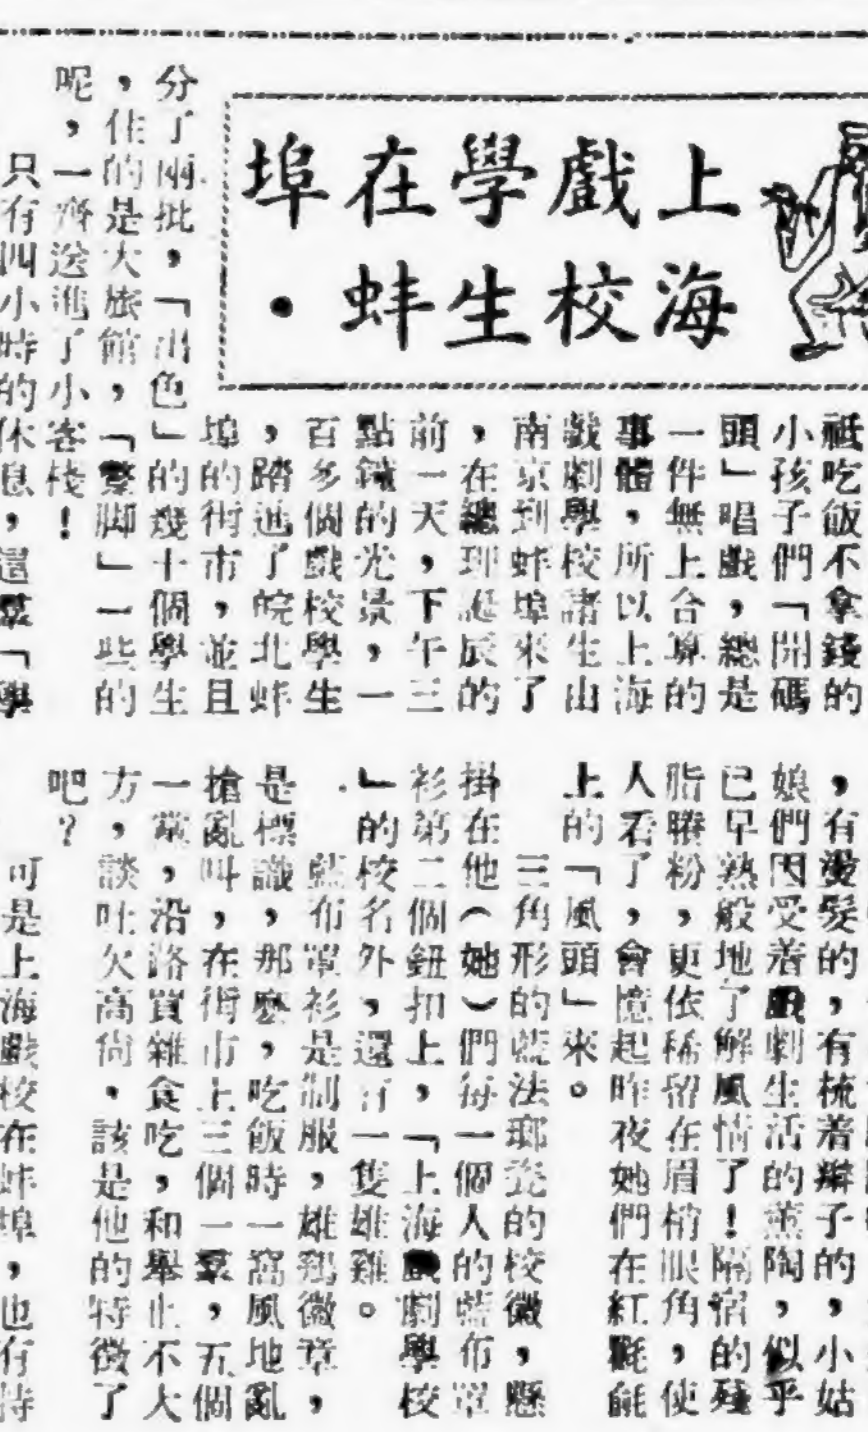 上海
戲校
學生
在蚌
埠・
祗吃飯不拿錢的
小孩子們「開碼
頭」唱戲，總是
一件無上合算的
事體，所以上海
戲劇學校諸生由
南京到蚌埠來了
，在總理誕辰的
前一天，下午三
點鐘的光景，一
百多個戲校學生
，踏進了皖北蚌
埠的街市，並且
分了兩批，「出色」的幾十個學生
，住的是大旅館，「蹩脚」一些的
呢，一齊送進了小客棧！
只有四小時的休息，這羣「學
，有燙髮的，有梳着辮子的，小姑
娘們因受着戲劇生活的薰陶，似乎
已早熟般地了解風情了！隔宿的殘
脂賸粉，更依稀留在眉梢眼角，使
人看了，會憶起昨夜她們在紅氍毹
上的「風頭」來。
三角形的藍法瑯瓷的校徽，懸
掛在他（她）們每一個人的藍布罩
衫第二個鈕扣上，「上海戲劇學校
」的校名外，還有一隻雄雞。
藍布罩衫是制服，雄鷄徽章，
是標識，那麽，吃飯時一窩風地亂
搶亂叫，在街市上三個一羣，五個
一黨，沿路買雜食吃，和舉止不大
方，談吐欠高尙，該是他的特徵了
吧？
可是上海戲校在蚌埠，也有特